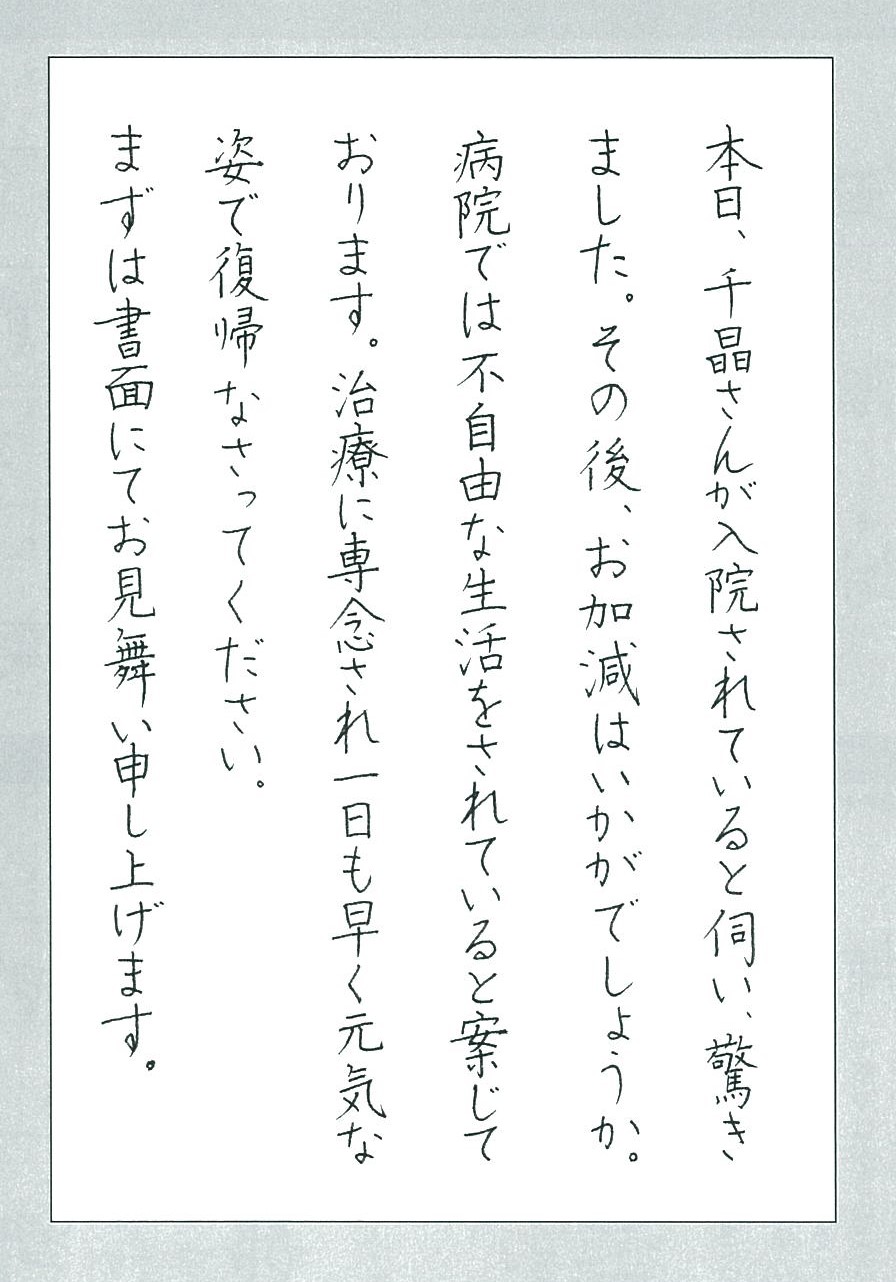 本日、千晶さんが入院されていると伺い、驚き
ました。その後、お加減はいかがでしょうか。
病院では不自由な生活をされていると案じて
おります。治療に専念され一日も早く元気な
姿で復帰なさってください。
まずは書面にてお見舞い申し上げます。